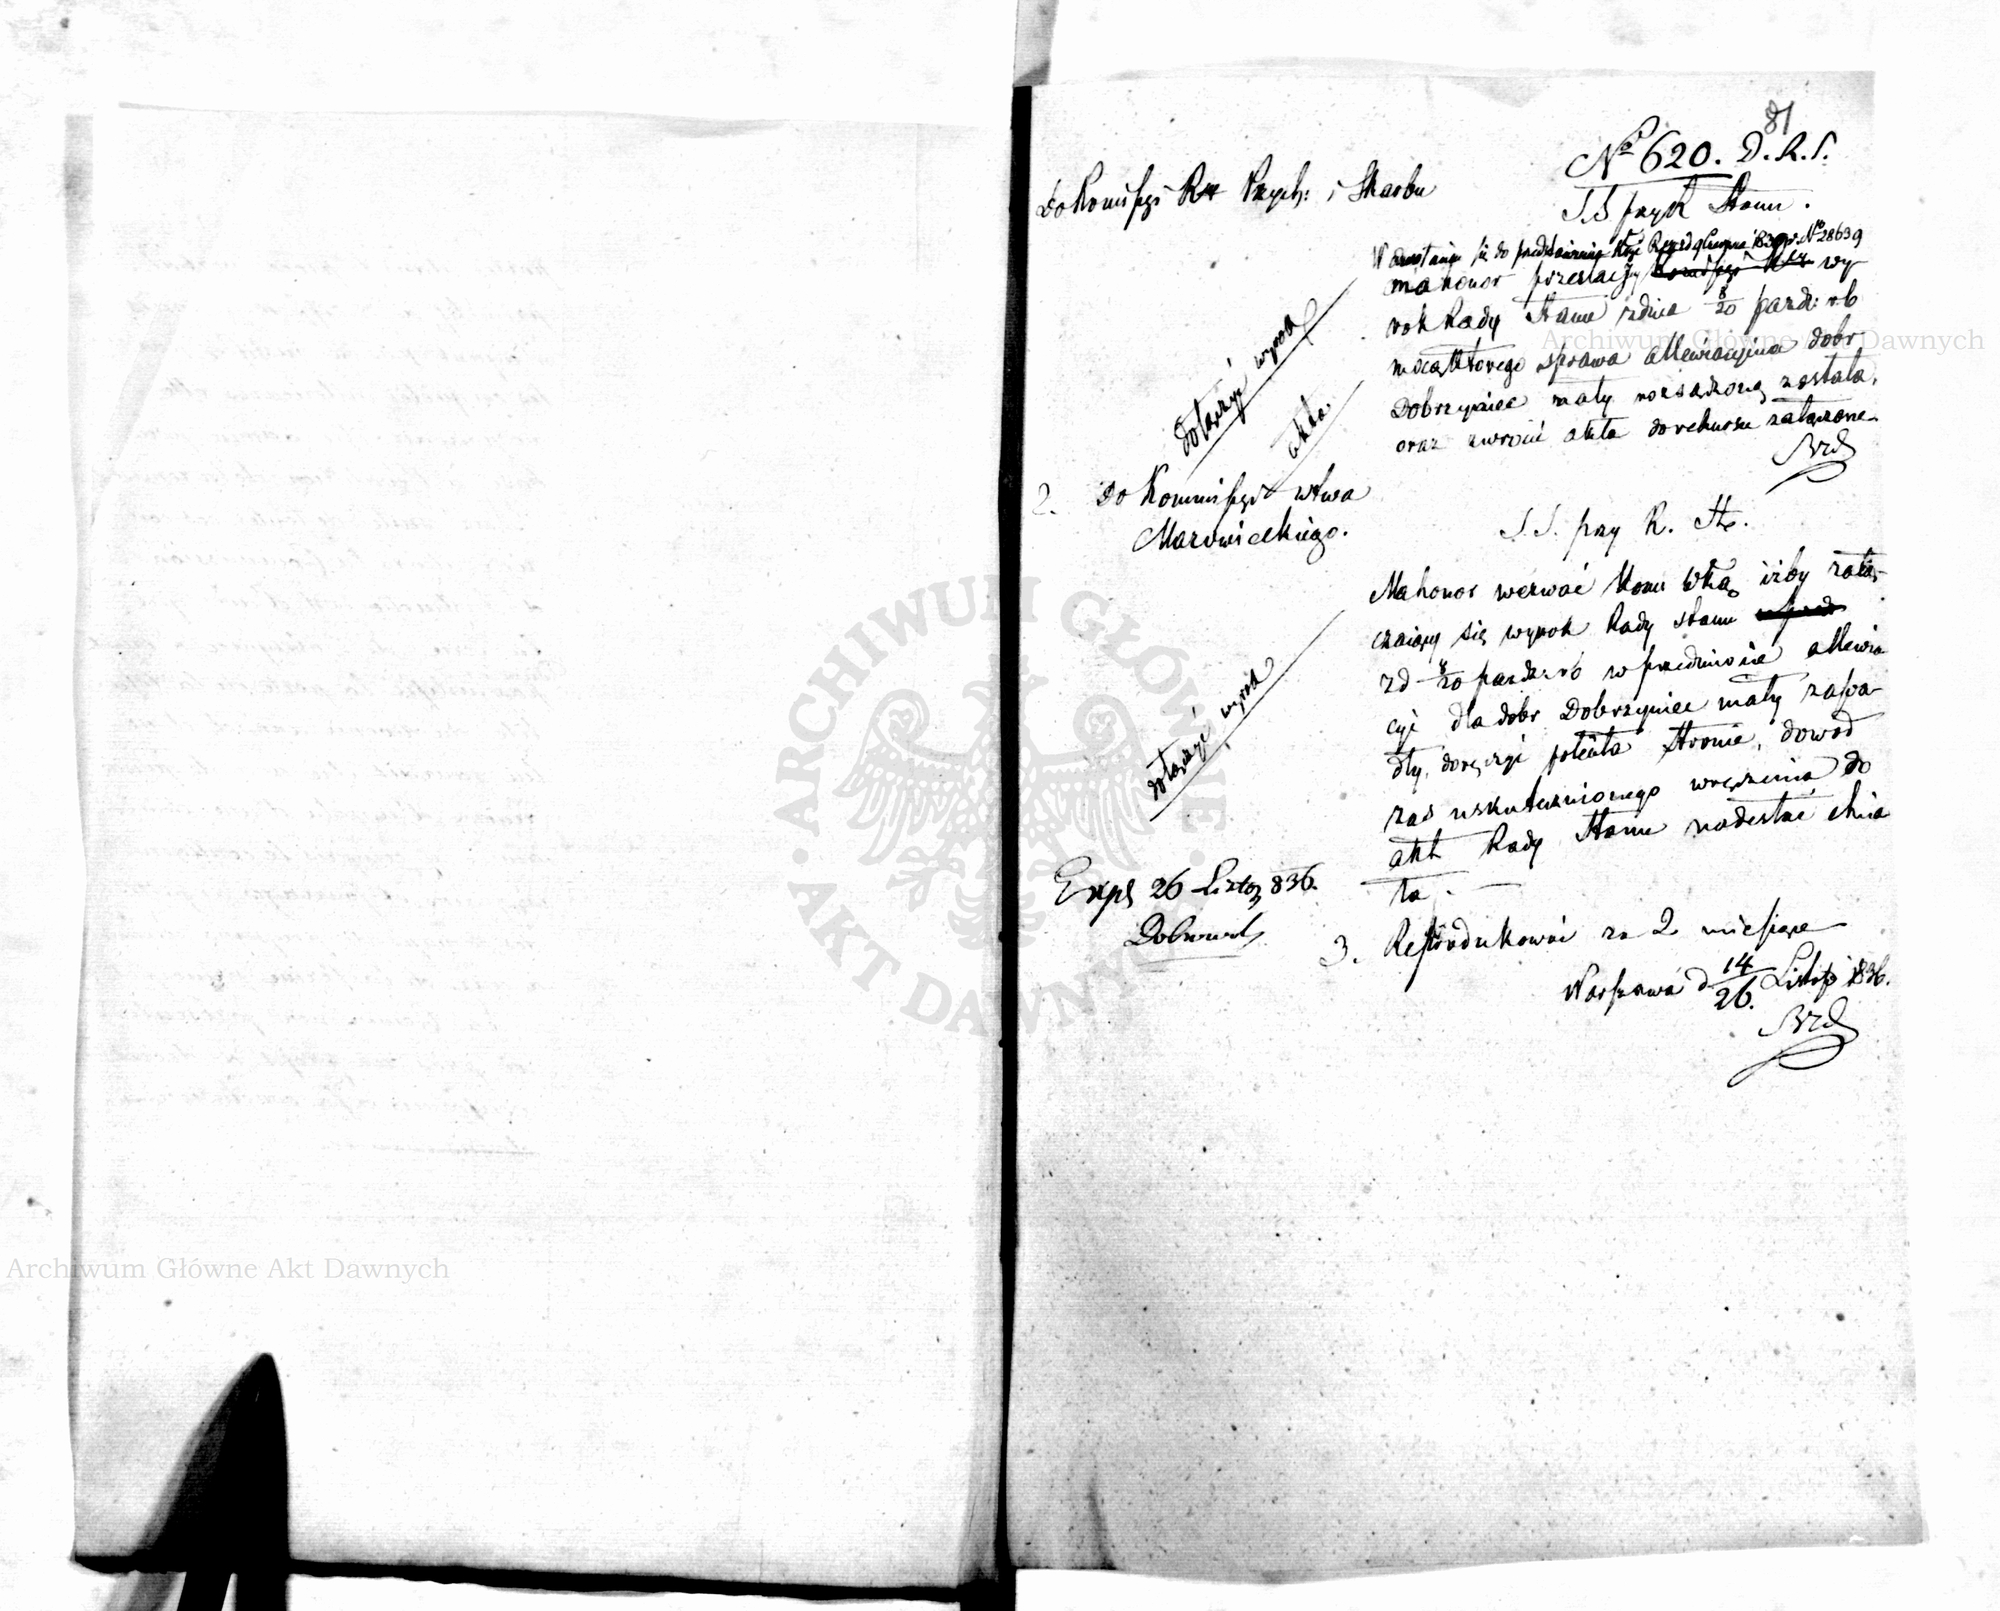 81
Nº 620. D.R.S.
Do Komisyi Rz Przych: i Skarbu
S.S przy R Stanu.
W odwołaniu się do przedstawienia 1836 r. Nº 28639
ma honor przesłać Jey wy-
rok Rady Stanu zdnia 8/20 paźdz: rb
mocą którego sprawa allewiacyjna dobr
Dobrzyniec mały rozsądzoną została,
oraz zwrócić akta do rekursu załączone.
dołączyć wyrok
akta.
2. Do Kommissyi wtwa
Mazowieckiego.
S.S. przy R. St.
Ma honor wezwać Kom: Wtą iżby załą-
czaiący się wyrok Rady stanu
zd 8/20 paźdz: rb w przedmiocie allewia
cyi dla dobr Dobrzyniec mały zapa-
dły, doręczyć stronie, dowod
zaś uskutecznionego wręczenia do
akt Rady Stanu nadesłać chcia
ła. —
dołączyć wyrok
Exp 26 Listop 836.
3. Reprodukować za 2 miesiące
Warszawa d 14/26. Listop 1836.
Archiwum Główne Akt Dawnych
Archiwum Główne Akt Dawnych
· ARCHIWUM GŁÓWNE · AKT DAWNYCH